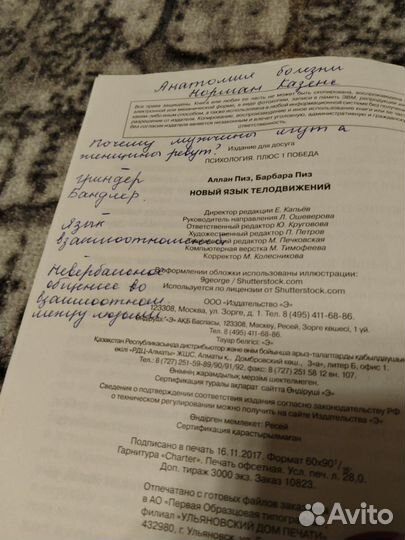 Анатомия болезни
Норман Казенс
Все права защищены. Книга или любая ее часть не может быть скопирована, воспроизведена
электронной или механической форме, в виде фотокопии, записи в память ЭВМ, репродукции или
каким-либо иным способом, а также использована в любой информационной системе без получения
разрешения от издателя. Копирование, воспроизведение и иное использование книги или ее части
без согласия издателя является незаконным и влечет уголовную, административную и гражданскую
ответственность.
Почему мужчины лгут а
женщины ревут?
Издание для досуга
ПСИХОЛОГИЯ. ПЛЮС 1 ПОБЕДА
Гриндер
Бандлер.
Аллан Пиз, Барбара Пиз
НОВЫЙ ЯЗЫК ТЕЛОДВИЖЕНИЙ
Язык
взаимоотношений
Директор редакции Е. Капьёв
Руководитель направления Л. Ошеверова
Ответственный редактор Ю. Круговова
Художественный редактор П. Петров
редактор М. Печковская
Компьютерная верстка М. Тимофеева
Корректор М. Колесникова
Невербальное
общение во
взаимоотнош
между людьми
оформлении обложки использованы иллюстрации:
9george / Shutterstock.com
Используется по лицензии от Shutterstock.com
ООО «Издательство «Э»
123308, Москва, ул. Зорге, д. 1. Тел. 8 (495) 411-68-86.
«Э» АҚБ Баспасы, 123308, Мәскеу, Ресей, Зорге көшесі, 1 үй.
Тел. 8 (495) 411-68-86.
Тауар белгісі: «Э»
Қазақстан Республикасында дистрибьютор және өнім бойынша арыз-талаптарды қабылдаушының
өкілі «РДЦ-Алматы» ЖШС, Алматы қ., Домбровский көш., 3«а», литер Б, офис 1.
Тел.: 8 (727) 251-59-89/90/91/92, факс: 8 (727) 251 58 12 вн. 107.
Өнімнің жарамдылық мерзімі шектелмеген.
Сертификация туралы ақпарат сайтта Өндіруші «Э»
Сведения о подтверждении соответствия издания согласно законодательству РФ
о техническом регулировании можно получить на сайте Издательства «Э»
Өндірген мемлекет: Ресей
Сертификация қарастырылмаған
Подписано в печать 16.11.2017. Формат 60x90¹/₁₆.
Гарнитура «Charter». Печать офсетная. Усл. печ. л. 28,0.
Доп. тираж 3000 экз. Заказ 10823.
Отпечатано с готовых файлов заказ
в АО «Первая Образцовая типограф
филиал «УЛЬЯНОВСКИЙ ДОМ ПЕЧАТИ»
432980, г. Ульяновск,
Avito